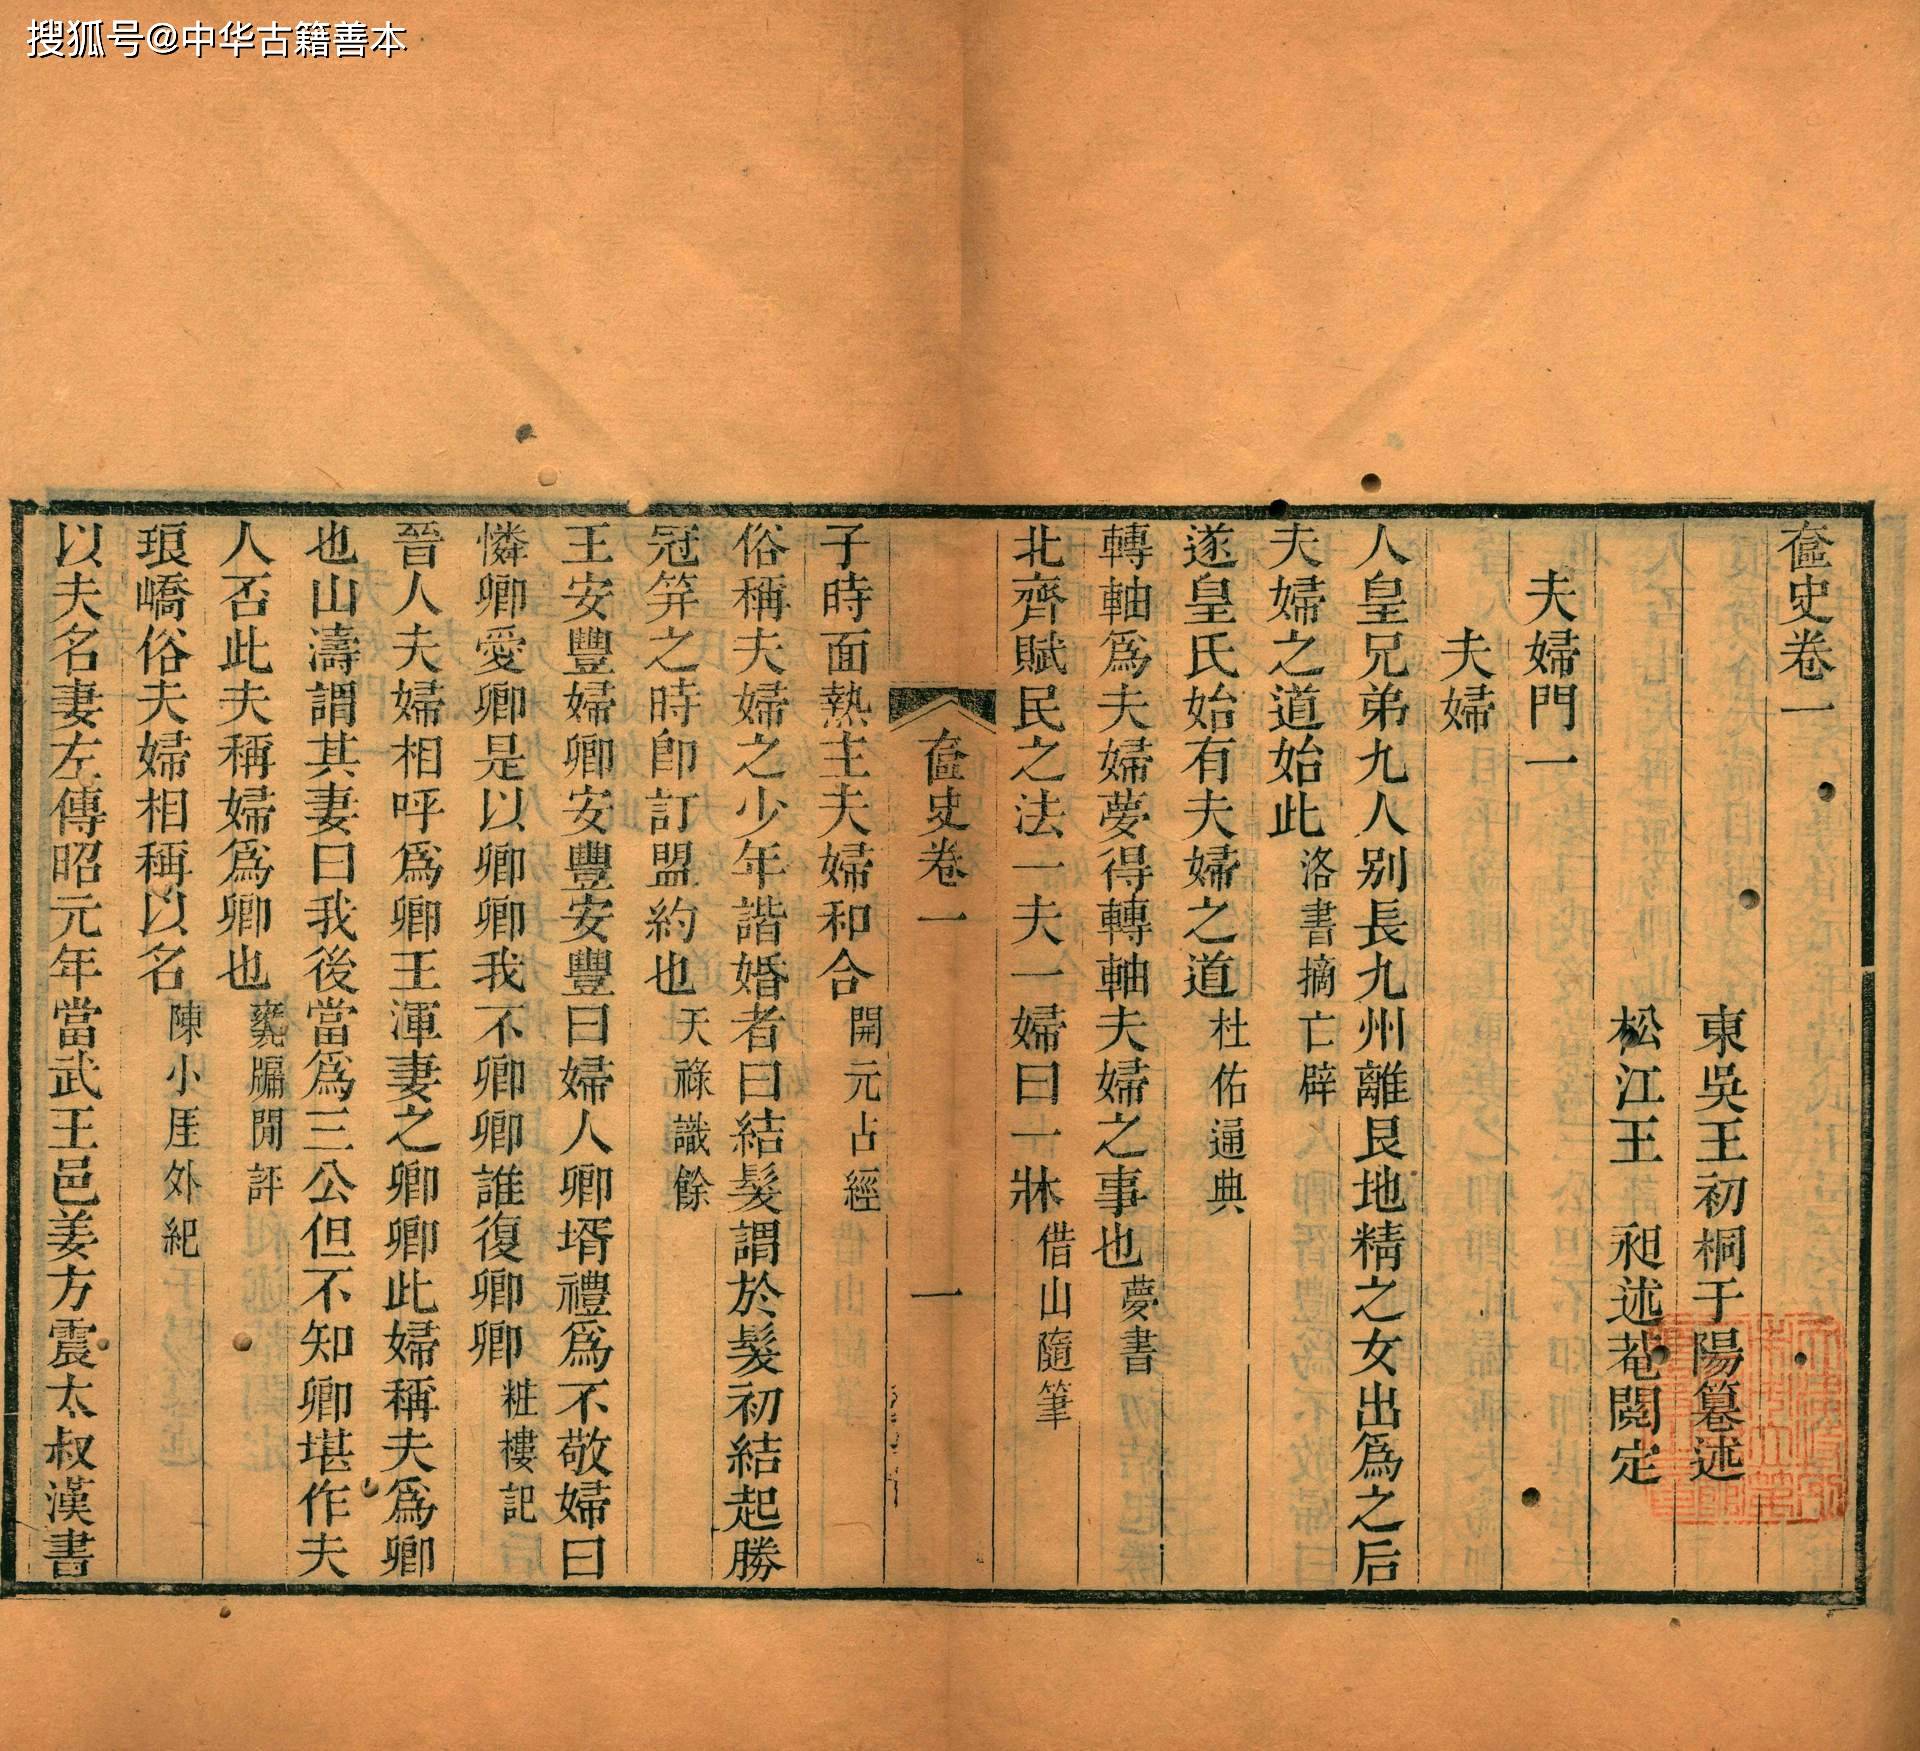 搜狐号@中华古籍善本
奩史卷一
東吳王初桐于陽篹述
松江王 昶述菴閱定
夫婦門一
夫婦
人皇兄弟九人别長九州離艮地精之女出爲之后
夫婦之道始此洛書摘亡辟
遂皇氏始有夫婦之道杜佑通典
轉軸爲夫婦夢得轉軸夫婦之事也夢書
北齊賦民之法一夫一婦曰一牀借山隨筆
奩史卷一 一
子時面熱主夫婦和合開元占經
俗稱夫婦之少年諧婚者曰結髮謂於髮初結起勝
冠笄之時卽訂盟約也天祿識餘
王安豐婦卿安豐安豐曰婦人卿壻禮爲不敬婦曰
憐卿愛卿是以卿卿我不卿卿誰復卿卿粧樓記
晉人夫婦相呼爲卿王渾妻之卿卿此婦稱夫爲卿
也山濤謂其妻曰我後當爲三公但不知卿堪作夫
人否此夫稱婦爲卿也甕牖閒評
琅嶠俗夫婦相稱以名陳小厓外紀
以夫名妻左傳昭元年當武王邑姜方震太叔漢書